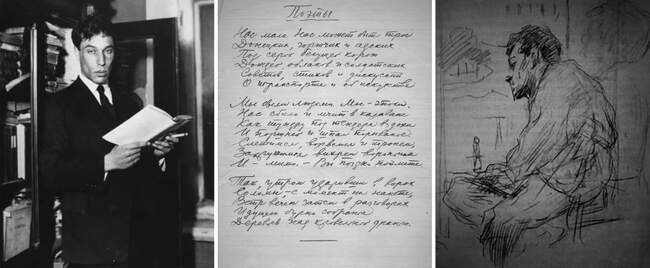 Поэты
Нас мало. Нас может быть трое
Донецких, горючих и адских
Под серой бегущей корою
Дождей, облаков и солдатских
Советов, стихов и дискуссий
О транспорте и об искусстве
Мы были людьми. Мы - эпохи.
Нас сбило и мчит в караване
Как тундру под тендера вздохи
И поршней и шпал порыванье
Слетимся, ворвемся и тронем,
Закружимся вихрем вороньим
И - мимо - Вы поздно поймете.
Так, утром ударивши в ворох
Соломы - с момент на намете,
Ветр вечен затем в разговорах
Идущего бурно собранья
Деревьев над кровельной дранью.